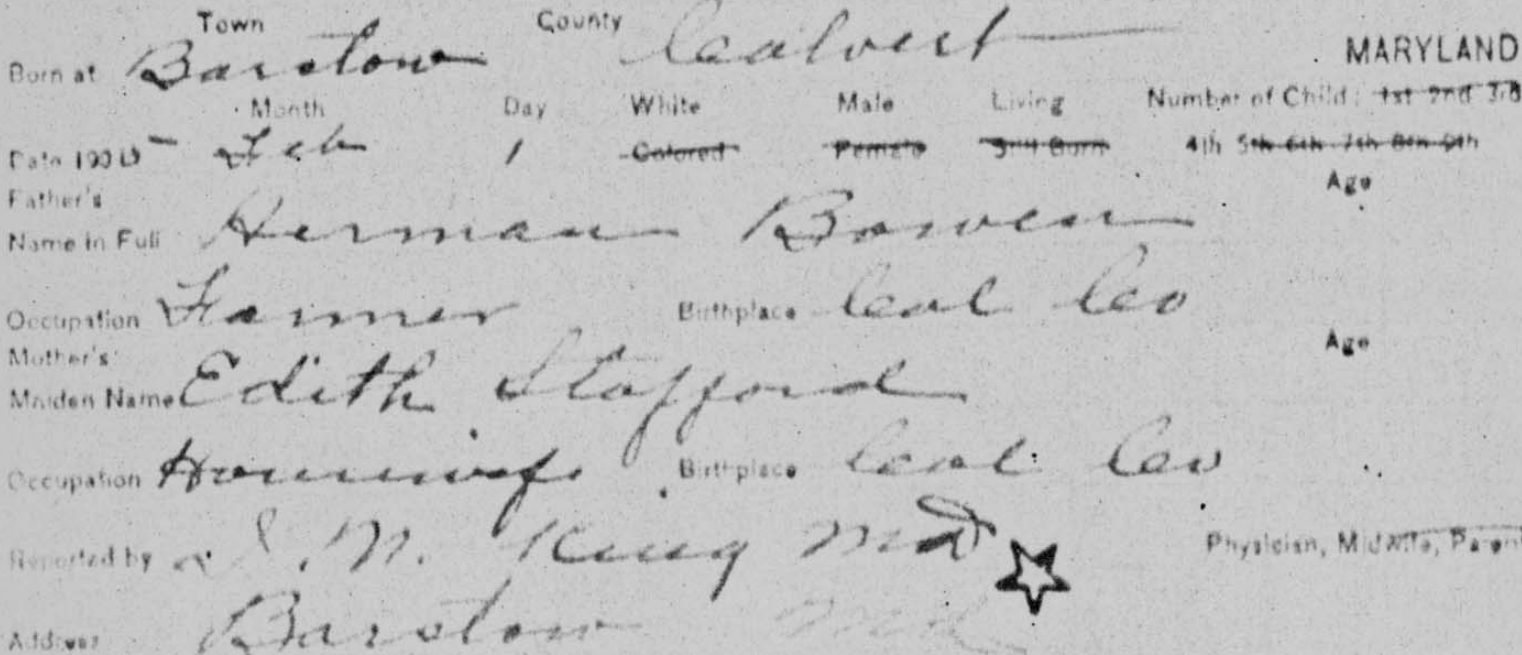 Town County
Born at Barstow Calvert MARYLAND
Month Day White Male Living Number of Child: 1st 2nd 3rd
Date 190 Feb 1 Colored Female Still Born 4th 5th 6th 7th 8th 9th
Father's Age
Name in Full Herman Bowen
Occupation Farmer Birthplace Cal Co
Mother's Age
Maiden Name Edith Stafford
Occupation Housewife Birthplace Cal Co
Reported by M. King MD Physician, Midwife, Parent
Address Barstow Md